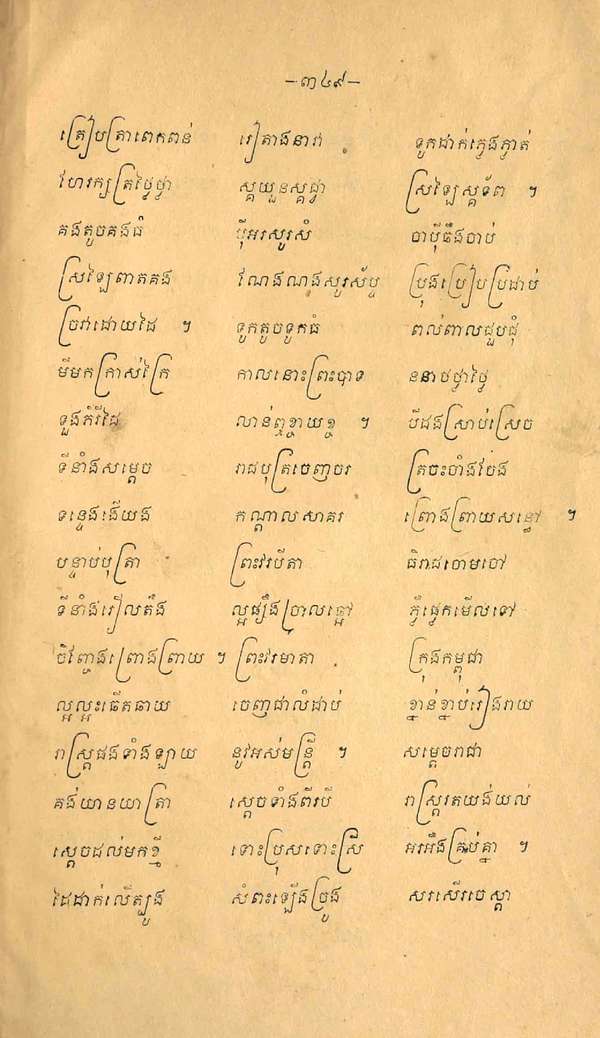 –៣៤៩–
ត្រៀបត្រាពេកពន់ រៀតាងនារា ទូកដាក់ភ្លេងភ្លាត់
ហែរក្បត្រផ្ទៃផ្ទា ស្គយួនស្គជ្វា ស្រឡៃស្គទ័ព ។
គងតូចគងធំ ប៉ីអរសូរសំ ចាប៉ីធឹងចាប់
ស្រឡៃពាតគង វណែងណងសូរស័ប្ទ ប្រុងប្រៀបប្រដាប់
ច្រវាដោយដៃ ។ ទូកតូចទូកធំ ពល់ពាលជួបជុំ
មីមកក្រាស់ក្រៃ កាលនោះព្រះបាទ ននាថថ្វាថ្វៃ
ទួងភំរីដៃ លាន់ឮខ្ចាយខ្ច ។ បីដងស្រាប់ស្រេច
ទីនាំងសម្តេច រាជបុត្រចេញចរ ត្រចះចាំងវែង
ទន្ទេងងើយង កណ្តាលសាគរ ព្រោងព្រាយសន្ធៅ ។
បន្ទាប់បុត្រា ព្រះវរបីតា ធិរាជចោមចៅ
ទីនាំងរៀលតឹង ល្អផ្សឹងច្រាលខ្មៅ ភ្នំភ្នែកមើលទៅ
ចិវិញ្ចាងព្រោងព្រាយ ។ ព្រះវរមាតា ក្រុងកម្ពុជា
ល្អល្អះឆើតឆាយ ចេញជាលំដាប់ ខ្នាន់ខ្នាប់រៀងរាយ
រាស្ត្រផងទាំងឡាយ នូវអស់មន្ត្រី ។ សម្តេចរាជា
គង់យានយាត្រា ស្តេចទាំងពីរបី រាស្ត្ររតយង់យល់
ស្តេចដល់មកខ្មី ទោះប្រុសទោះស្រី អរអឺងគ្រប់គ្នា ។
ដៃដាក់លើត្បូង សំពះឡើងច្រូង សរសើរចេស្តា